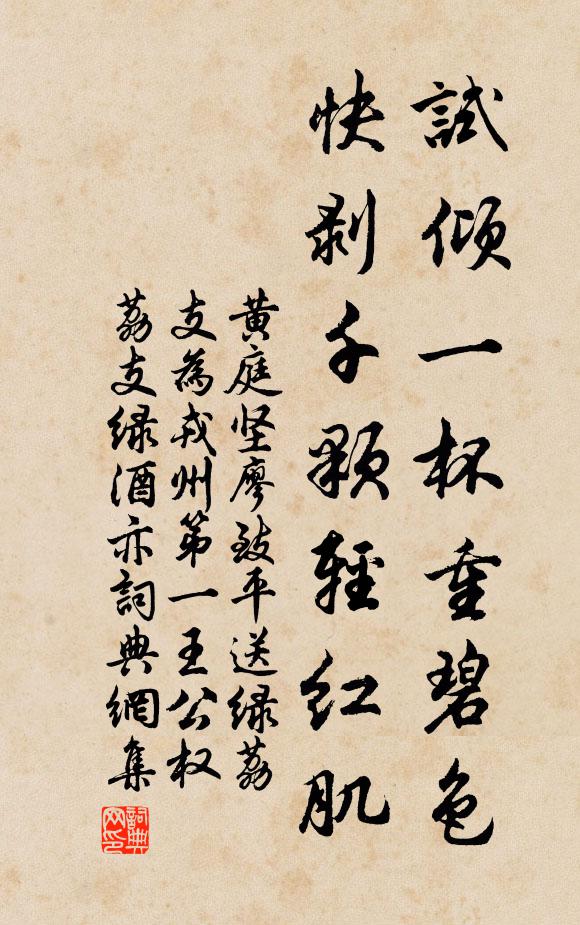 試傾一杯重碧色
快剥千顆輕红肌
黄庭坚廖致平送绿荔
支為戎州第一王公权
荔支绿酒亦詞典網集
詞典
网印